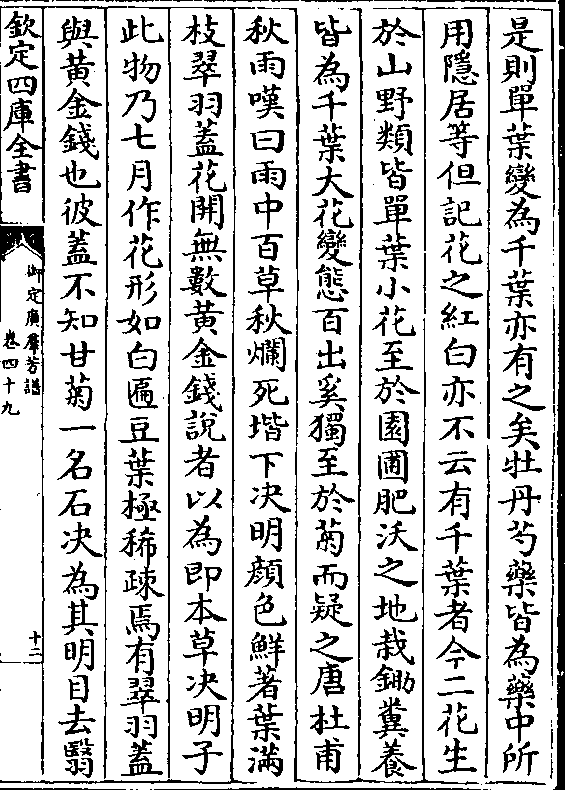 是則單葉變為千葉亦有之矣牡丹芍藥皆為藥中所
用隱居等但記花之紅白亦不云有千葉者今二花生
於山野類皆單葉小花至於園圃肥沃之地栽鋤糞養
皆為千葉大花變態百出奚獨至於菊而疑之唐杜甫
秋雨嘆曰雨中百草秋爛死堦下决明顔色鮮著葉滿
枝翠羽蓋花開無數黃金錢說者以為即本草决明子
此物乃七月作花形如白匾豆葉極稀踈焉有翠羽蓋
與黃金錢也彼蓋不知甘菊一名石决為其明目去翳
欽定四庫全書
御定廣羣芳譜
卷四十九
十二